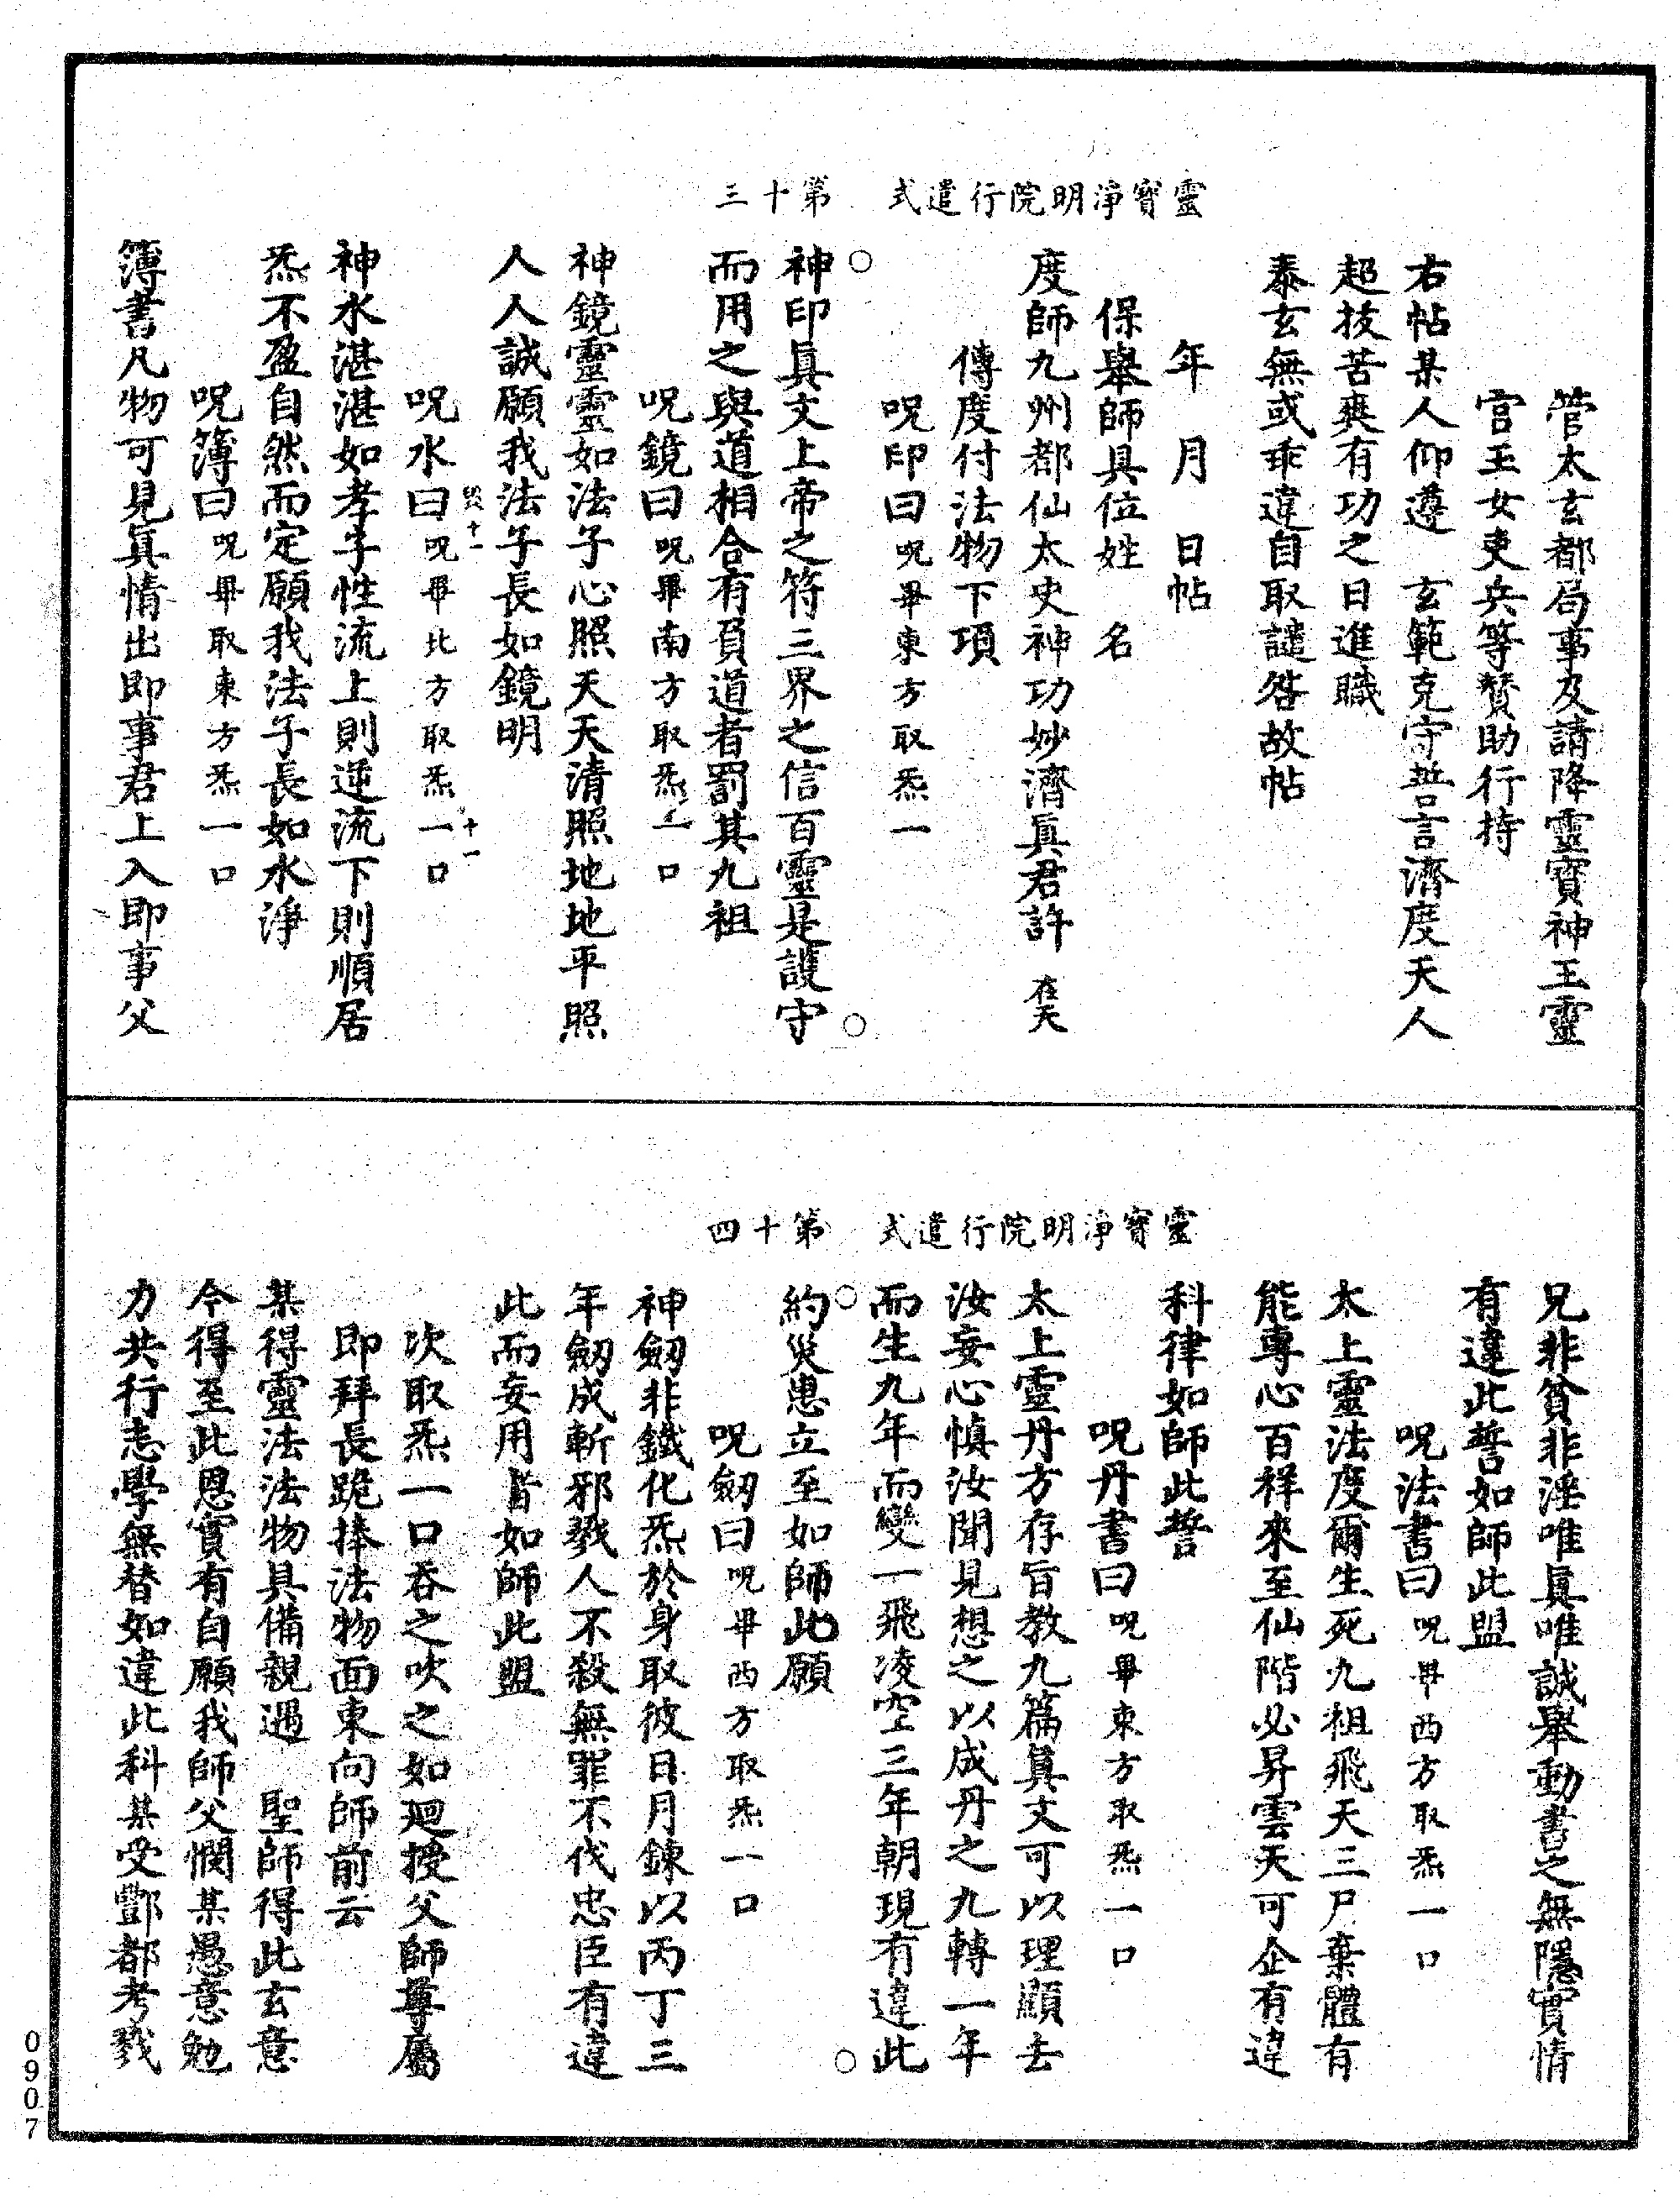 靈寶淨明院行遣式　第十三
管太玄都局事及請降靈寶神王靈
官玉女吏兵等贊助行持
右帖某人仰遵　玄範克守無言濟度天人
超拔苦爽有功之日進職
泰玄無或乖違自取譴咎故帖
年　月　日帖
保舉師具位姓　名
度師九州都仙太史神功妙濟眞君許在天
傳度付法物下項
呪印曰呪畢東方取炁一
神印眞文上帝之符三界之信百靈是護守
而用之與道相合有負道者罰其九祖
呪鏡曰呪畢南方取炁一口
神鏡靈靈如法子心照天天清照地地平照
人人誠願我法子長如鏡明
十一
呪水曰呪畢北方取炁一口
十一
神水湛湛如孝子性流上則逆流下則順居
炁不盈自然而定願我法子長如水淨
呪簿曰呪畢取東方炁一口
簿書凡物可見眞情出即事君上入即事父
靈寶淨明院行遣式　第十四
兄非貧非淫唯眞唯誠舉動書之無隱實情
有違此誓如師此盟
呪法書曰呪畢西方取炁一口
太上靈法度爾生死九祖飛天三尸棄體有
能專心百祥來至仙階必昇雲天可企有違
科律如師此誓
呪丹書曰呪畢東方取炁一口
太上靈丹方存旨教九篇眞文可以理顯去
汝妄心愼汝聞見想之以成丹之九轉一年
而生九年而變一飛凌空三年朝現有違此
約災患立至如師此願
呪劒曰呪畢西方取炁一口
神劒非鐵化炁於身取彼日月鍊以丙丁三
年劒成斬邪戮人不殺無罪不伐忠臣有違
此而妄用眚如師此盟
次取炁一口吞之吹之如廻授父師尊屬
即拜長跪捧法物面東向師前云
某得靈法法物具備親遇　聖師得此玄意
今得至此恩實有自願我師父憫某愚意勉
力共行志學無替如違此科某受酆都考戮
0907